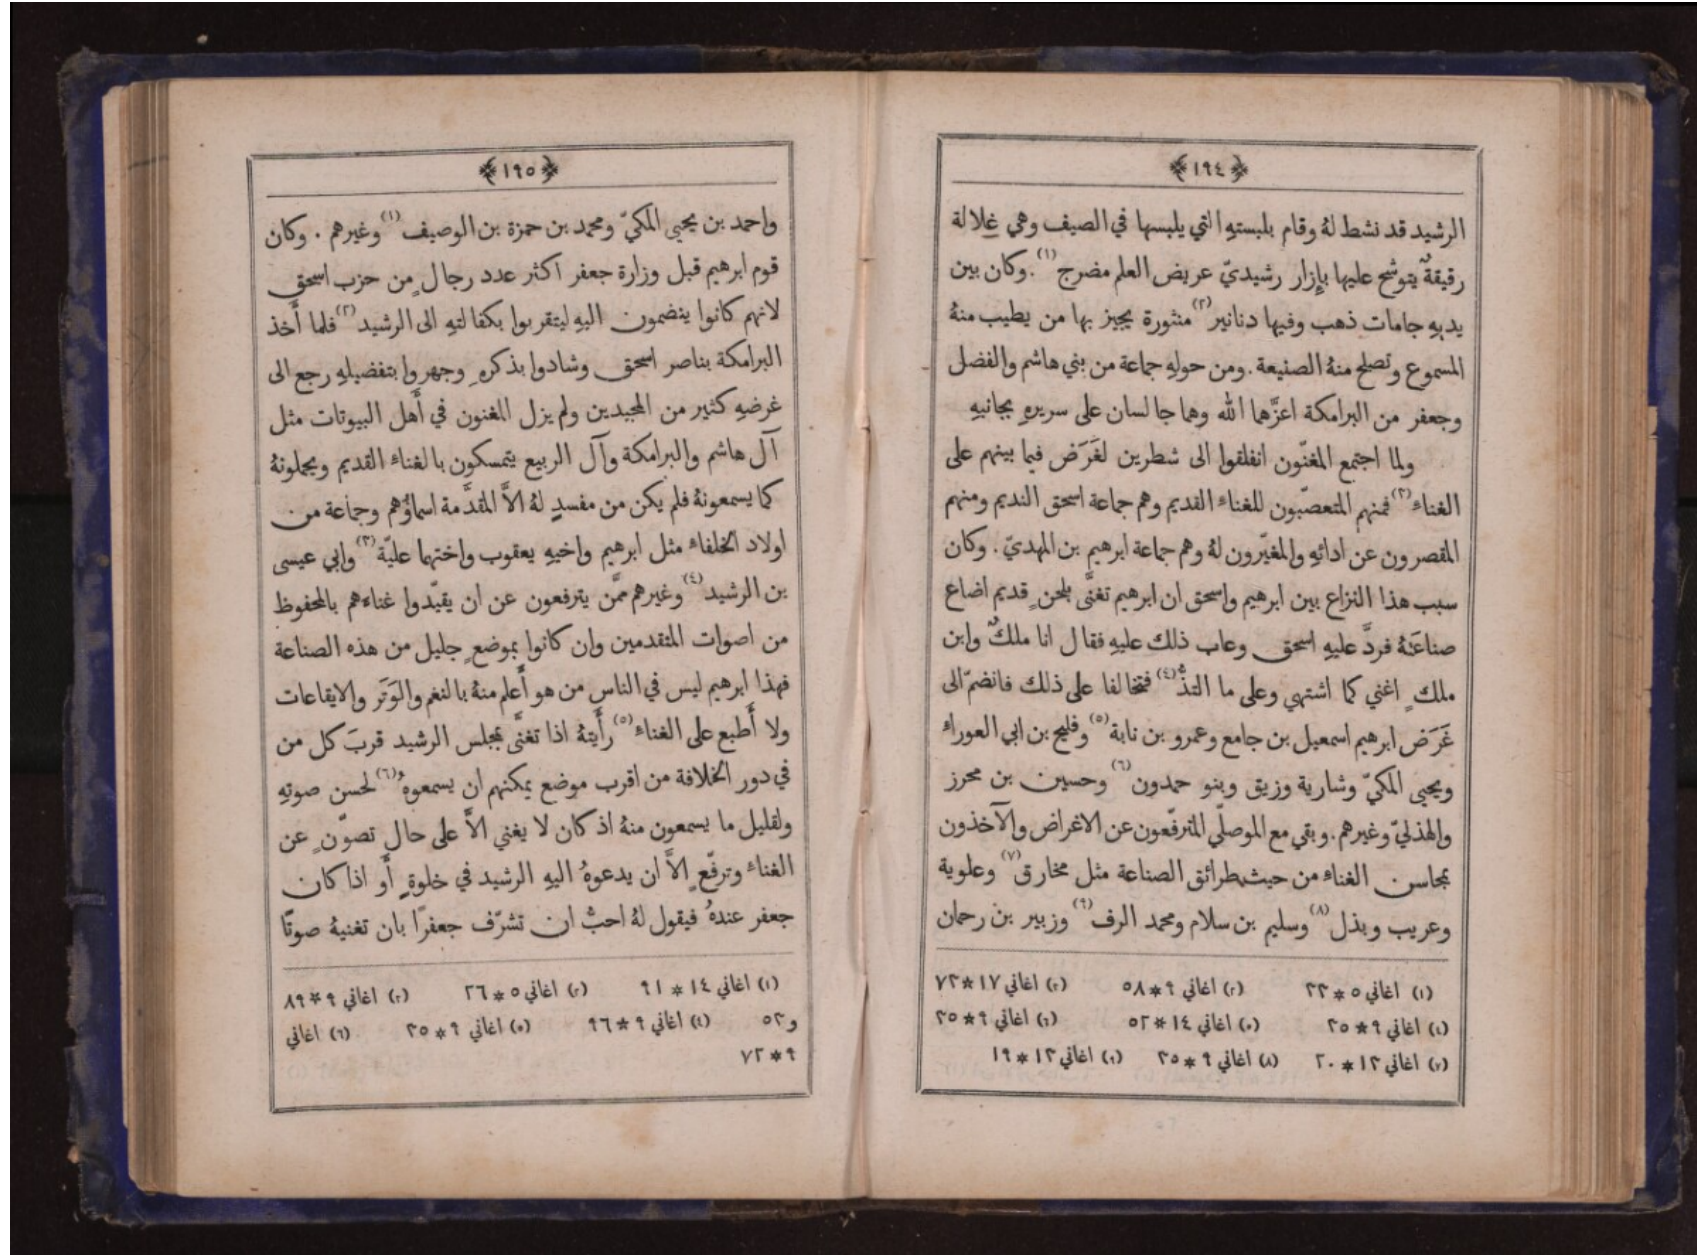 ﴿١٩٤﴾
الرشيد قد نشط لهُ وقام بلبستهِ التي يلبسها في الصيف وهي غِلالة
رقيقةٌ يتوشح عليها بإِزار رشيديّ عريض العلم مضرج (١) . وكان بين
يديهِ جامات ذهب وفيها دنانير (٢) منثورة يجيز بها من يطيب منهُ
المسموع وتصلح منهُ الصنيعة . ومن حولهِ جماعة من بني هاشم والفضل
وجعفر من البرامكة اعزَّهما الله وهما جالسان على سريرهِ بجانبيهِ
ولما اجتمع المغنّون انفلقوا الى شطرين لغَرَض فيما بينهم على
الغناء (٣) فمنهم المتعصّبون للغناء القديم وهم جماعة اسحق النديم ومنهم
المقصرون عن ادائهِ والمغيّرون لهُ وهم جماعة ابرهيم بن المهديّ . وكان
سبب هذا النزاع بين ابرهيم واسحق ان ابرهيم تغنَّى بلحنٍ قديم اضاع
صناعَتهُ فردَّ عليهِ اسحق وعاب ذلك عليهِ فقال انا ملكٌ وابن
ملكٍ اغني كما اشتهي وعلى ما التذُّ (٤) فتخالفا على ذلك فانضمّ الى
غَرَض ابرهيم اسمعيل بن جامع وعمرو بن نابة (٥) وفليح بن ابي العوراء
ويحيى المكيّ وشارية وزيق وبنو حمدون (٦) وحسين بن محرز
والهذليّ وغيرهم . وبقي مع الموصلّي المترفّعون عن الاغراض والآخذون
بمحاسن الغناء من حيث طرائق الصناعة مثل مخارق (٧) وعلوية
وعريب وبذل (٨) وسليم بن سلام ومحمد الرف (٩) وزبير بن رحمان
(١) اغاني ٥ * ٢٢ (٢) اغاني ٩ * ٥٨ (٣) اغاني ١٧ * ٧٣
(٤) اغاني ٩ * ٣٥ (٥) اغاني ١٤ * ٥٢ (٦) اغاني ٩ * ٣٥
(٧) اغاني ١٣ * ٢٠ (٨) اغاني ٩ * ٣٥ (٩) اغاني ١٣ * ١٩
﴿١٩٥﴾
واحمد بن يحيى المكيّ ومحمد بن حمزة بن الوصيف (١) وغيرهم . وكان
قوم ابرهيم قبل وزارة جعفر اكثر عدد رجالٍ من حزب اسحق
لانهم كانوا ينضمون اليهِ ليتقربوا بكفالتهِ الى الرشيد (٢) فلما أَخذ
البرامكة بناصر اسحق وشادوا بذكرهِ وجهروا بتفضيلهِ رجع الى
غرضهِ كثير من المجيدين ولم يزل المغنون في أَهل البيوتات مثل
آل هاشم والبرامكة وآل الربيع يتمسكون بالغناء القديم ويحملونهُ
كما يسمعونهُ فلم يكن من مفسدٍ لهُ الاَّ المقدَّمة اسماؤُهم وجماعة من
اولاد الخلفاء مثل ابرهيم واخيهِ يعقوب واختهما عليّة (٣) وابي عيسى
بن الرشيد (٤) وغيرهم ممَّن يترفعون عن ان يقيّدوا غناءهم بالمحفوظ
من اصوات المتقدمين وان كانوا بموضعٍ جليل من هذه الصناعة
فهذا ابرهيم ليس في الناس من هو أَعلم منهُ بالنغم والوَتَر والايقاعات
ولا أَطبع على الغناء (٥) رأَيتهُ اذا تغنَّى بمجلس الرشيد قربَ كل من
في دور الخلافة من اقرب موضع يمكنهم ان يسمعوهُ (٦) لحسن صوتهِ
ولقليل ما يسمعون منهُ اذ كان لا يغني الاَّ على حال تصوّنٍ عن
الغناء وترفّعٍ الاَّ ان يدعوهُ اليهِ الرشيد في خلوةٍ أَو اذا كان
جعفر عندهُ فيقول لهُ احبُّ ان تشرّف جعفرًا بان تغنيهُ صوتًا
(١) اغاني ١٤ * ٩١ (٢) اغاني ٥ * ٢٦ (٣) اغاني ٩ * ٨٩
و٥٣ (٤) اغاني ٩ * ٩٦ (٥) اغاني ٩ * ٣٥ (٦) اغاني
٩ * ٧٣